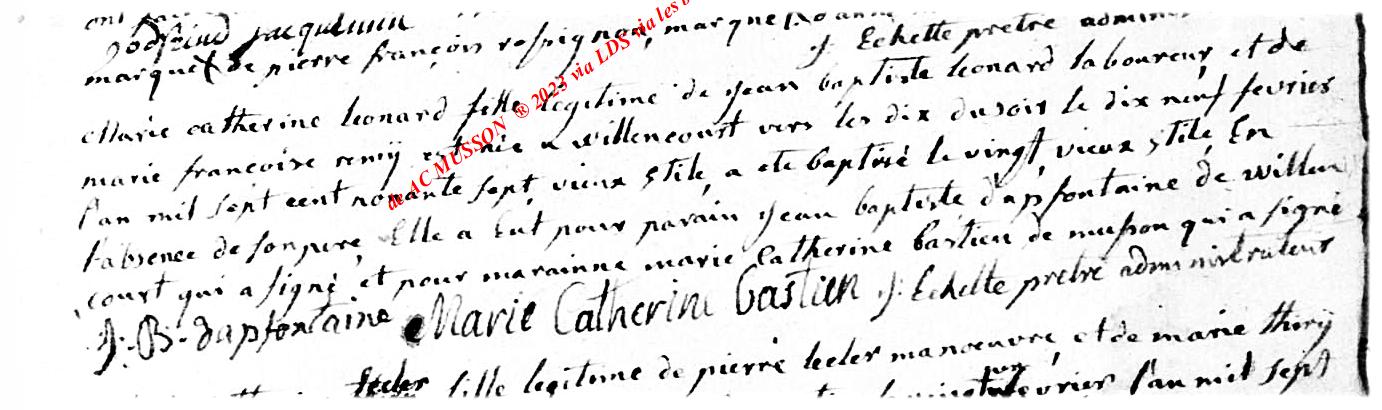 ont
jacquemin
marque de pierre françois rossignon, marque
J: Echette pretre admin
Marie catherine leonard fille legitime de jean baptiste leonard laboureur et de
marie françoise remÿ est née a willencourt vers les dix du soir le dix neuf fevrier
l'an mil sept cent nonante sept vieux stile, a ete baptisé le vingt, vieux stile, En
l'absence de son pere, Elle a Eut pour parain jean baptiste dapfontaine de willen
court qui a signé et pour marainne marie Catherine bastien de musson qui a signé
J: B: dapfontaine Marie Catherine bastien J: Echette pretre administrateur
lecler fille legitime de pierre lecler manœuvre, et de marie thirÿ
fevrier l'an mil sept
de AC MUSSON ® 2023 via LDS via les